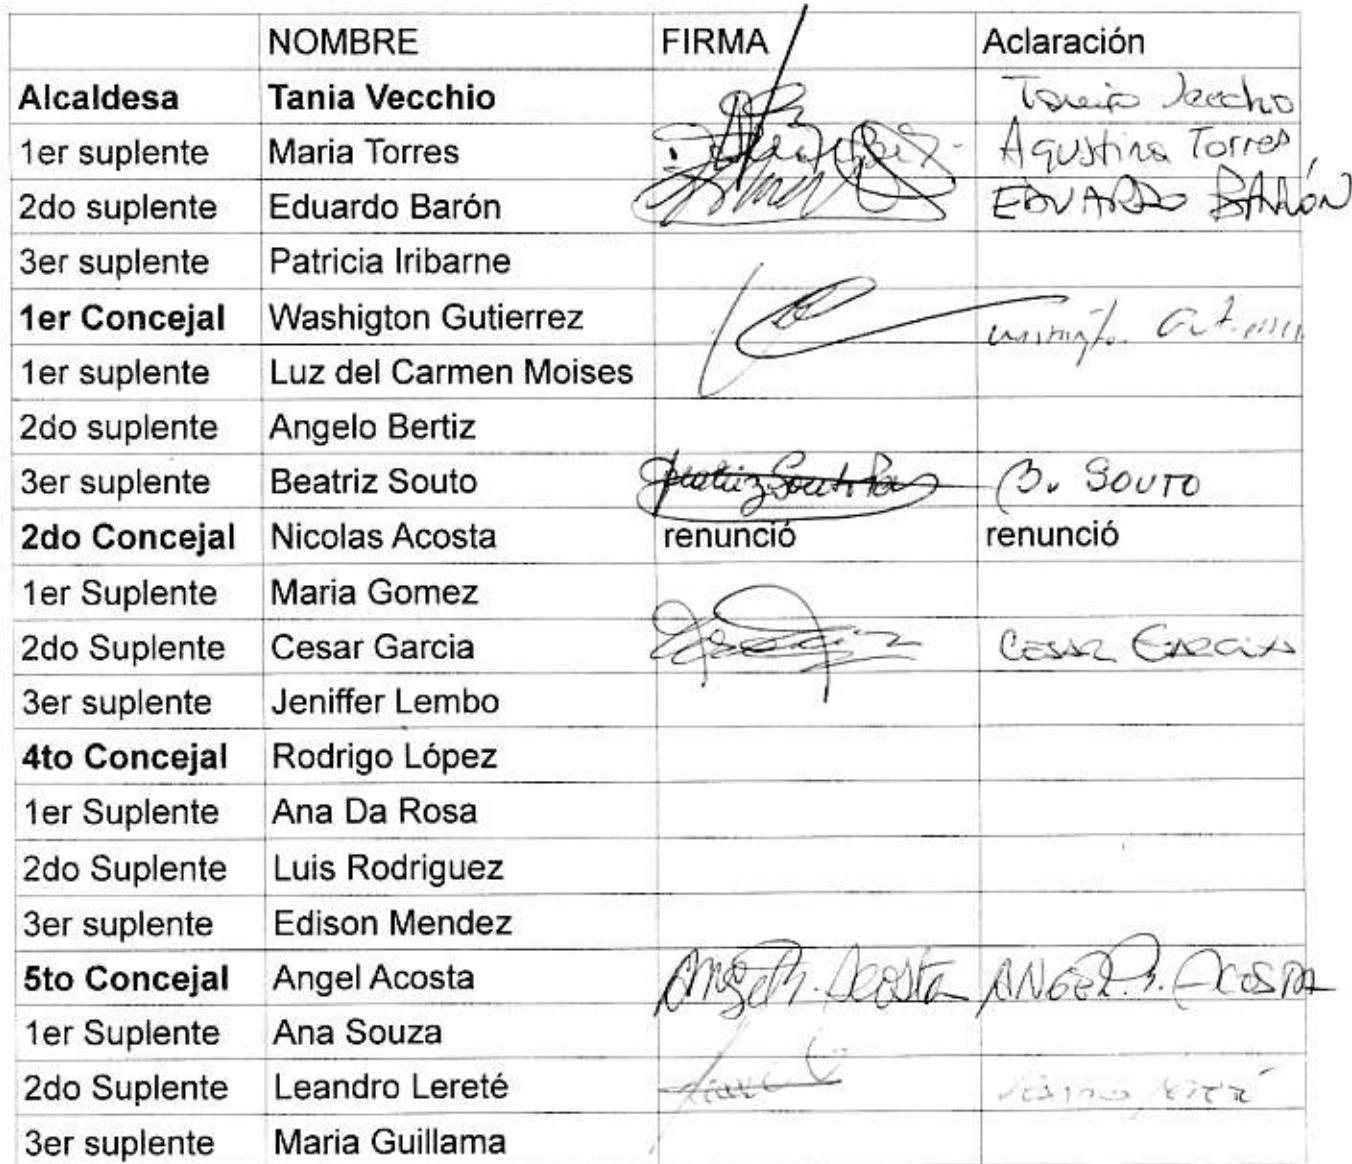 NOMBRE FIRMA Aclaración
Alcaldesa Tania Vecchio Tania Vecchio
1er suplente Maria Torres Agustina Torres
2do suplente Eduardo Barón EDUARDO BARÓN
3er suplente Patricia Iribarne
1er Concejal Washigton Gutierrez
1er suplente Luz del Carmen Moises
2do suplente Angelo Bertiz
3er suplente Beatriz Souto B. SOUTO
2do Concejal Nicolas Acosta renunció renunció
1er Suplente Maria Gomez
2do Suplente Cesar Garcia CESAR GARCIA
3er suplente Jeniffer Lembo
4to Concejal Rodrigo López
1er Suplente Ana Da Rosa
2do Suplente Luis Rodriguez
3er suplente Edison Mendez
5to Concejal Angel Acosta Angel M. Acosta ANGEL M. ACOSTA
1er Suplente Ana Souza
2do Suplente Leandro Lereté
3er suplente Maria Guillama